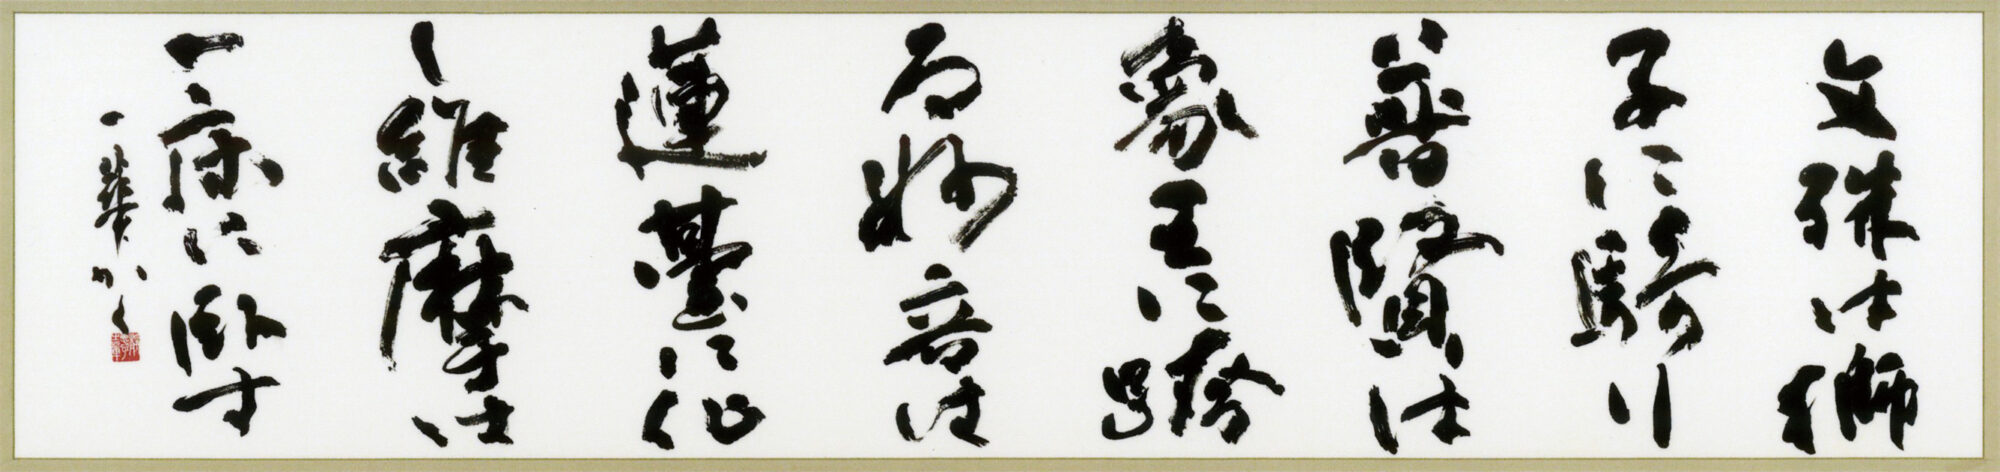 文殊は獅
子に騎り
普賢は
象王に跨
る妙音は
蓮臺に化
し維摩は
一床に臥す
一華かく